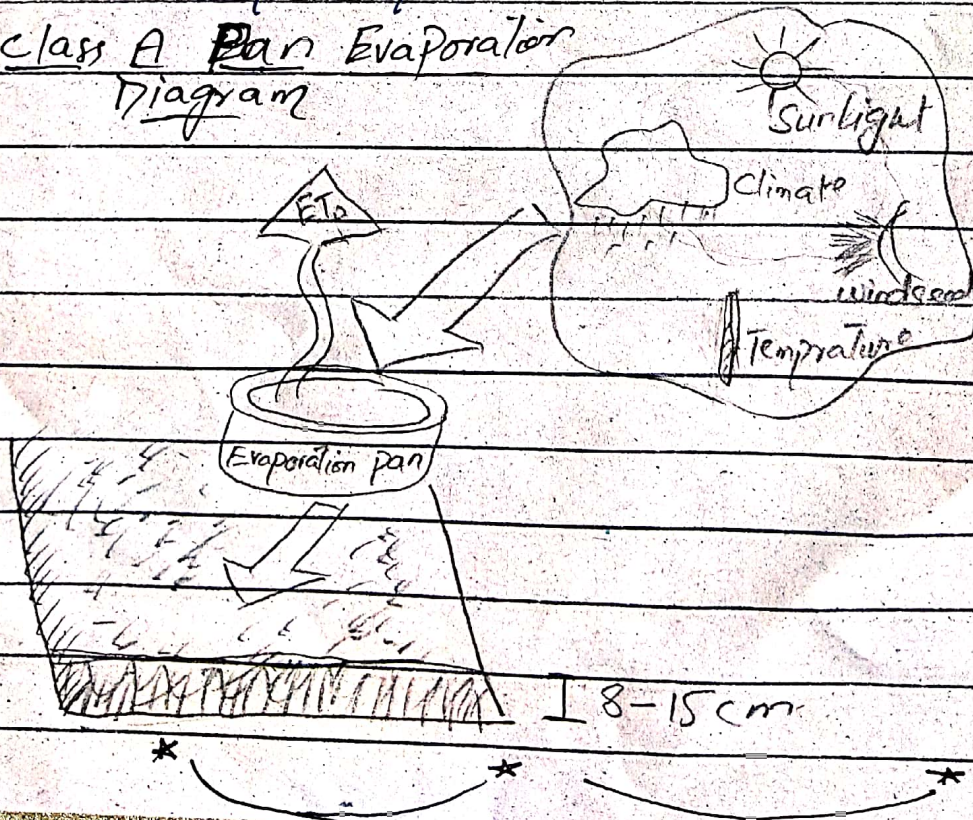 Class A Pan Evaporation
Diagram
Sunlight
Climate
ETo
Temprature
Evaporation pan
8-15 cm